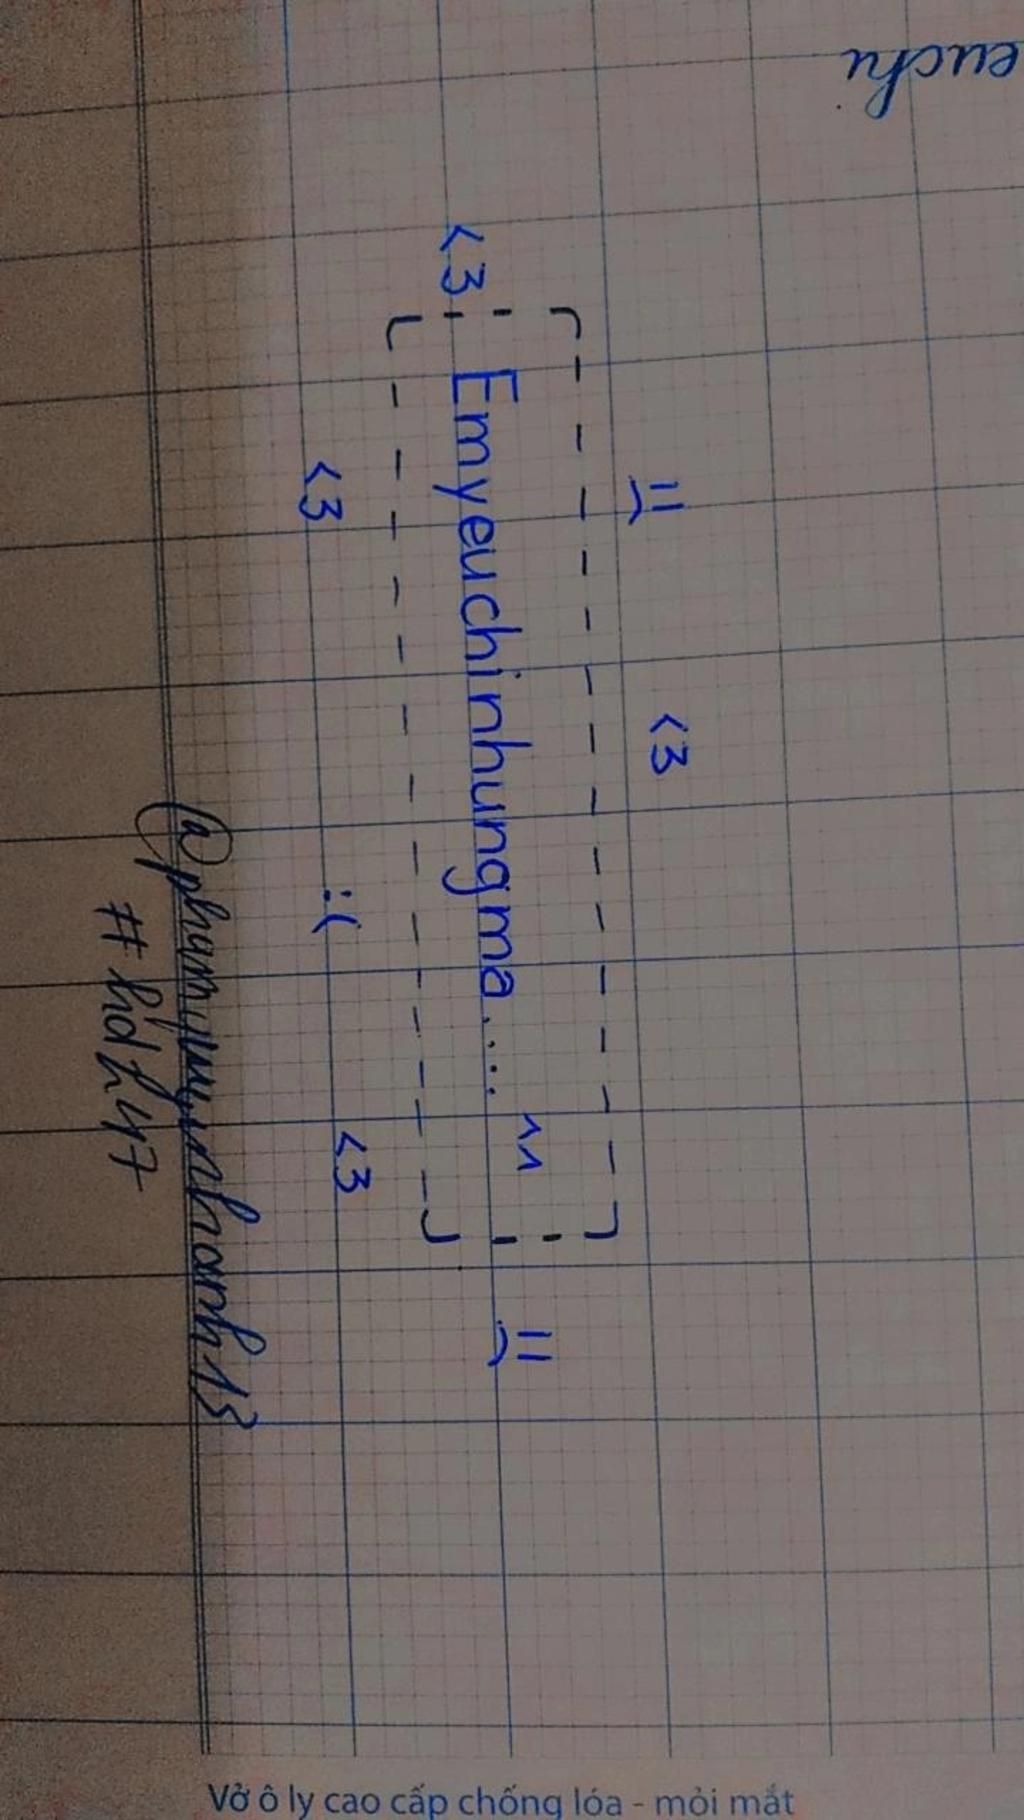 euchi
=)
<3
<3 Emyeuchinhungma.... ^^
=)
<3 :( <3
#hdh47
Vở ô ly cao cấp chống lóa - mỏi mắt